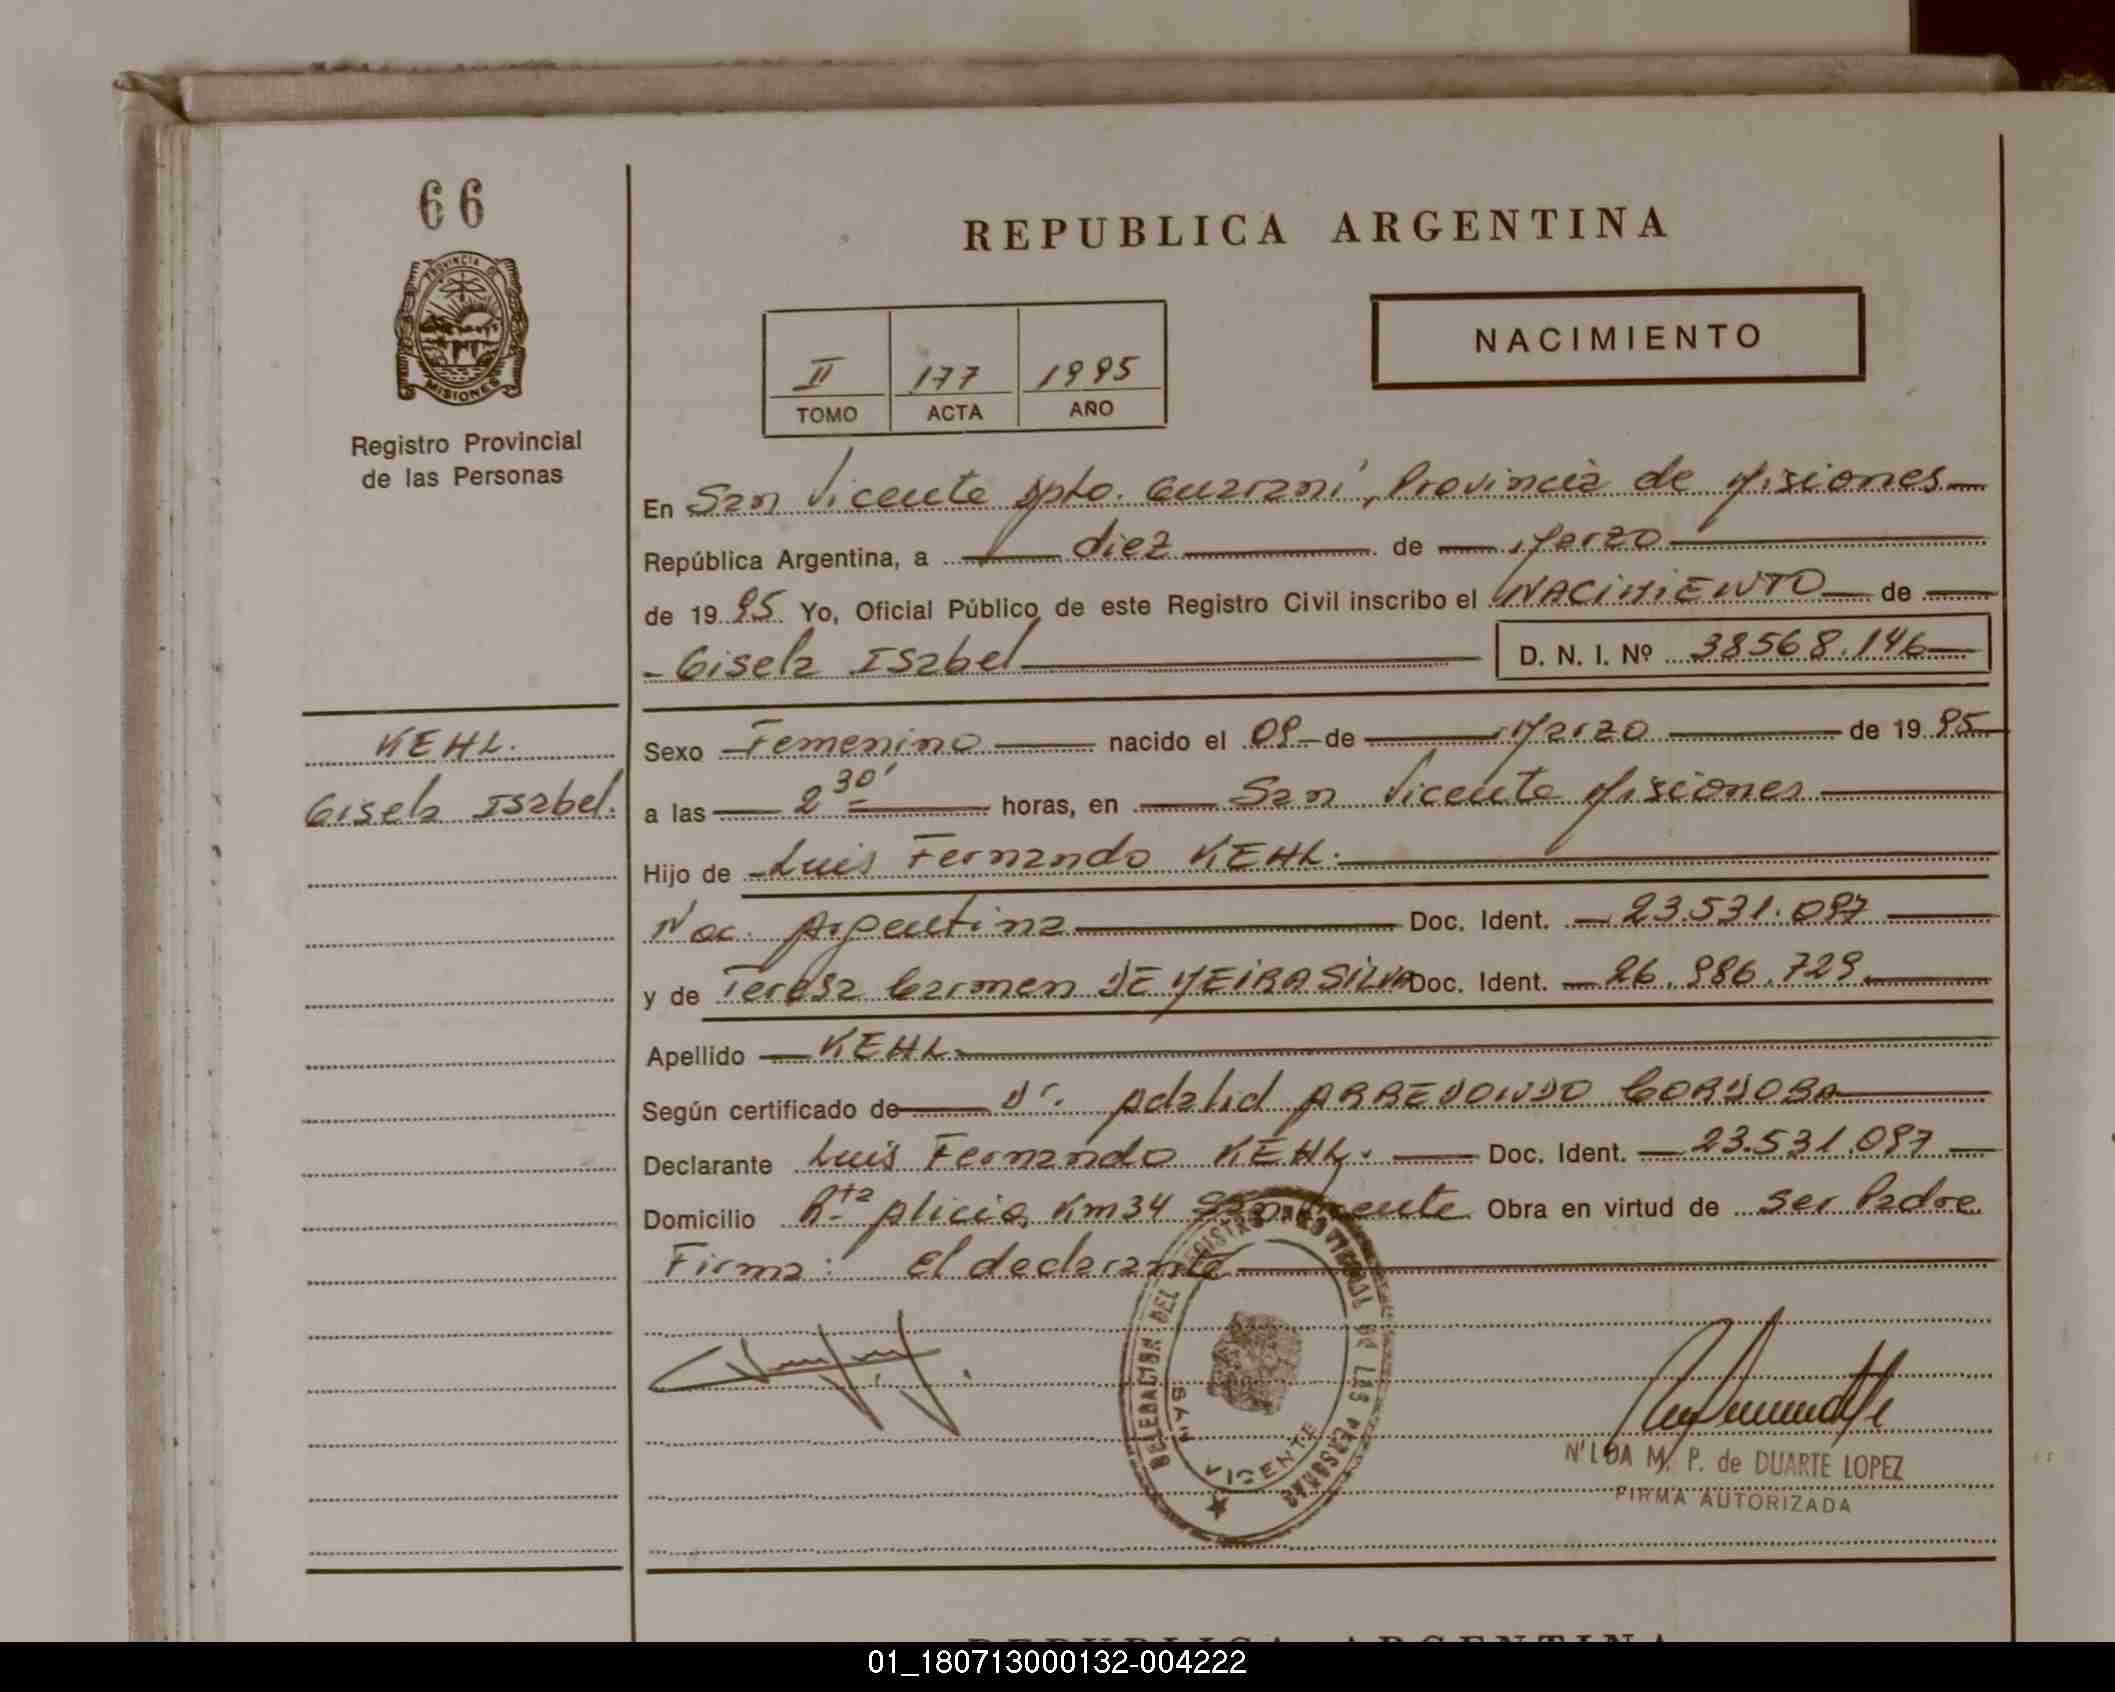 66
PROVINCIA DE
MISIONES
Registro Provincial
de las Personas
REPUBLICA ARGENTINA
NACIMIENTO
II 177 1995
TOMO ACTA AÑO
En San Vicente Dpto. Guarani, Provincia de Misiones
República Argentina, a diez de Marzo
de 1995 Yo, Oficial Público de este Registro Civil inscribo el NACIMIENTO de
Gisela Isabel D. N. I. Nº 38568.146
KEHL.
Gisela Isabel.
Sexo Femenino nacido el 09 de Marzo de 1995
a las 2 30' horas, en San Vicente Misiones
Hijo de Luis Fernando KEHL.
Nac. Argentina Doc. Ident. 23.531.097
y de Teresa Carmen DE MEIRA SILVA Doc. Ident. 26.986.729.
Apellido KEHL.
Según certificado de Dr. Adalid ARREDONDO CORDOBA
Declarante Luis Fernando KEHL. Doc. Ident. 23.531.097
Domicilio Rta Alicia, Km 34 San Vicente Obra en virtud de ser Padre
Firma: El declarante
DELEGACION DEL REGISTRO PROVINCIAL DE LAS PERSONAS
SAN VICENTE
NILDA M. P. de DUARTE LOPEZ
FIRMA AUTORIZADA
REPUBLICA ARGENTINA
01_180713000132-004222